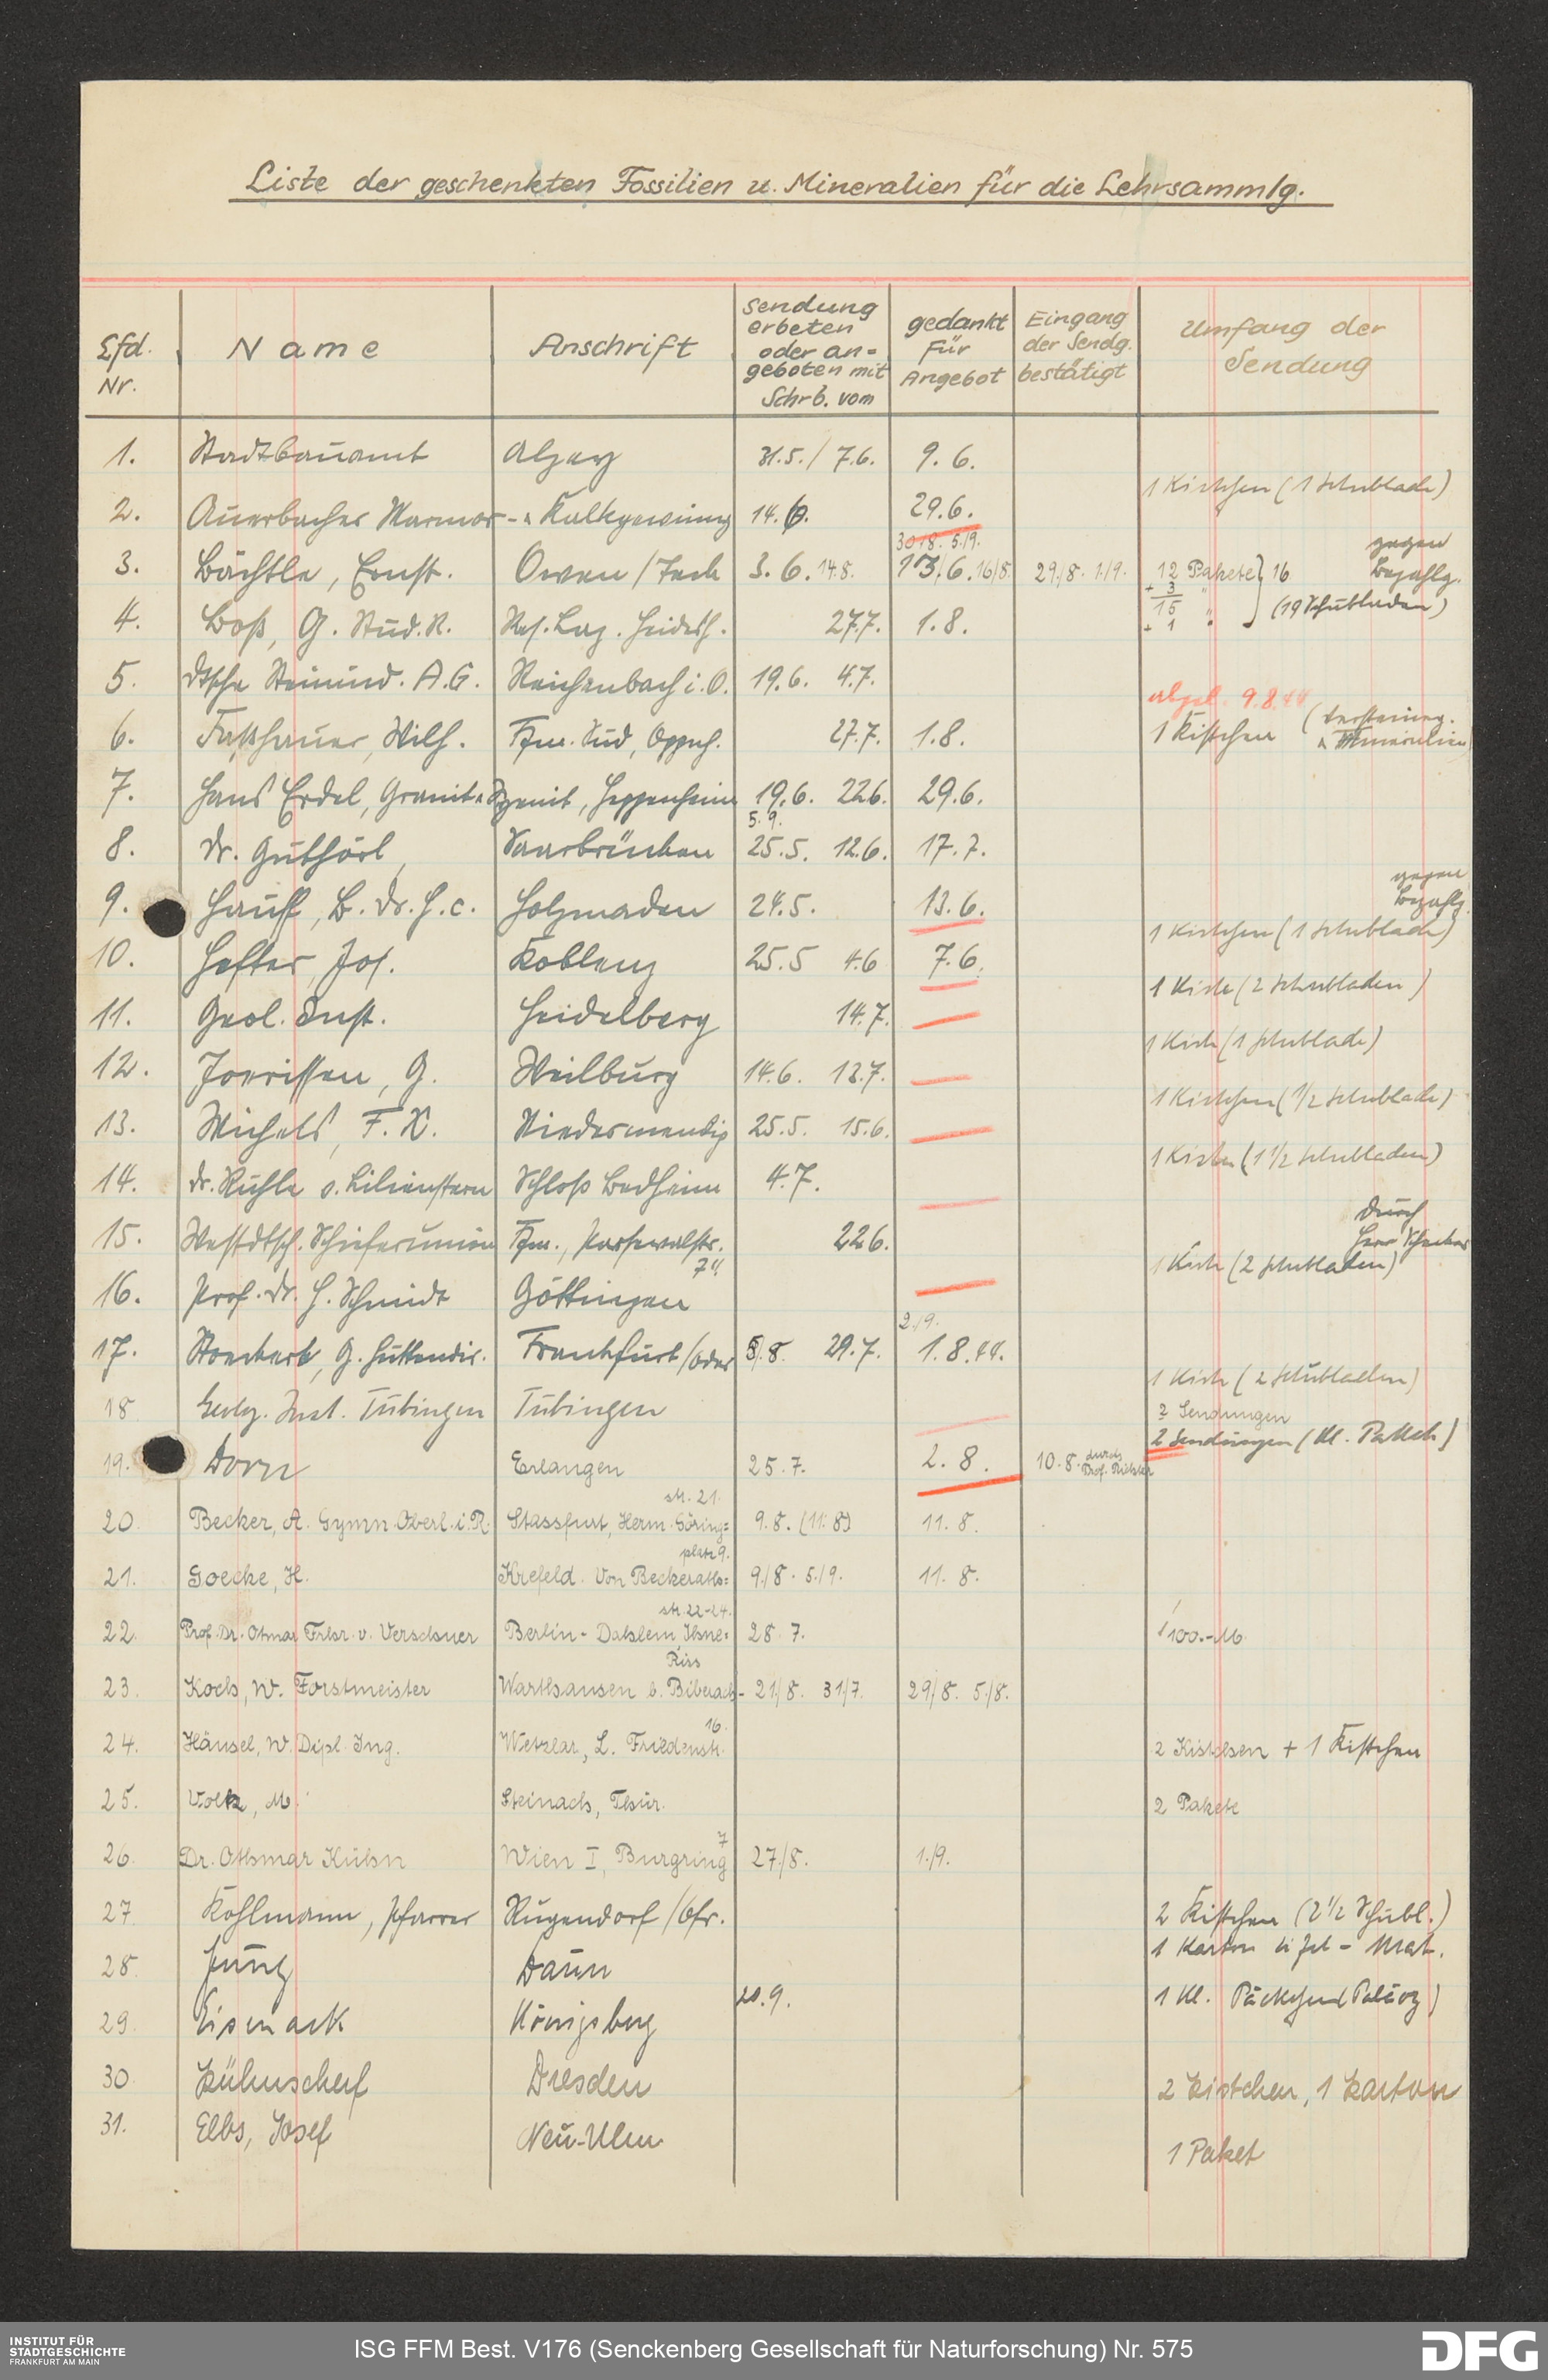 Liste der geschenkten Fossilien u. Mineralien für die Lehrsammlg.
Lfd. Nr. Name Anschrift Sendung erbeten oder an= geboten mit Schrb. vom gedankt für Angebot Eingang der Sendg. bestätigt Umfang der Sendung
1. Stadtbauamt Alzey 31.5. / 7.6. 9.6.
1 Kistchen (1 Schublade)
2. Auerbacher Marmor- u. Kalkgewinng 14.6. 29.6.
30/8. 5/9. gegen
3. Bächtle, Ernst. Owen/Teck 3.6. 14.8. 13/6. 16/8. 29/8. 1/9. 12 Pakete } 16 Bezahlg.
+ 3 "
15 " (19 Schubladen)
+ 1 "
4. Boß, G. Stud.R. Res. Laz. Heidelb. 27.7. 1.8.
5. Dtsche Steinind. A.G. Reichenbach i.O. 19.6. 4.7.
abgel. 9.8.44
6. Faßhauer, Wilh. Ffm. Süd, Oppenh. 27.7. 1.8. 1 Kistchen (Versteinerg. u. Mineralien)
7. Hans Erdel, Granit u. Syenit, Heppenheim 19.6. 22.6. 29.6.
5.9.
8. Dr. Guthörl, Saarbrücken 25.5. 12.6. 17.7.
gegen Bezahlg.
9. Hauff, B. Dr. h.c. Holzmaden 24.5. 13.6.
1 Kistchen (1 Schublade)
10. Hefter, Jos. Koblenz 25.5 4.6 7.6.
1 Kiste (2 Schubladen)
11. Geol. Inst. Heidelberg 14.7.
1 Kiste (1 Schublade)
12. Joerissen, G. Weilburg 14.6. 13.7.
1 Kistchen (1/2 Schublade)
13. Michels, F.X. Niedermendig 25.5. 15.6.
1 Kiste (1 1/2 Schubladen)
14. Dr. Rühle v. Lilienstern Schloß Bedheim 4.7.
durch
15. Westdtsch. Schieferunion Ffm., 22.6. Herr
1 Kiste (2 Schubladen)
16. Prof. Dr. H. Schmidt Göttingen
2./9.
17. G. Hüttendir. Frankfurt/Oder 8/8. 29.7. 1.8.44.
1 Kiste (2 Schubladen)
18 Geolog. Inst. Tübingen Tübingen 2 Sendungen
2 Sendungen (kl. Paketch)
19. Dorn Erlangen 25.7. 2.8. 10.8. durch Prof. Richter
str. 21.
20. Becker, A. Gymn. Oberl. i. R. Stassfurt, Herm. Göring= 9.8. (11.8) 11.8.
platz 9.
21. Goecke, H. Krefeld. Von Beckeraths= 9./8. 5./9. 11.8.
str. 22-24.
22. Prof. Dr. Otmar Frhr. v. Verschuer Berlin-Dahlem, Ihne= 28.7. 100.-M.
Riss
23. Koch, W. Forstmeister Warthausen b. Biberach- 21/8. 31/7. 29/8. 5./8.
16.
24. Hänsel, W. Dipl. Ing. Wetzlar, L. Friedenstr. 2 Kistchen + 1 Kistchen
25. Volk, M. Steinach, Thür. 2 Pakete
7
26. Dr. Othmar Kühn Wien I, Burgring 27./8. 1./9.
27 Kohlmann, Pfarrer Rugendorf/Ofr. 2 Kistchen (2 1/2 Schubl.)
1 Karton Eifel-Mat.
28 Jung Daun
20.9. 1 kl. Päckchen (Paläoz)
29. Eisenack Königsberg
30 Kühnscherf Dresden 2 Kistchen, 1 Karton
31. Elbs, Josef Neu-Ulm
1 Paket
INSTITUT FÜR
STADTGESCHICHTE
FRANKFURT AM MAIN
ISG FFM Best. V176 (Senckenberg Gesellschaft für Naturforschung) Nr. 575
DFG